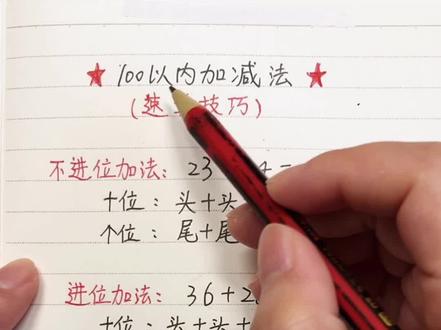 ★100以内加减法★
(速 技巧)
不进位加法: 23
十位: 头+头
个位: 尾+尾
进位加法: 36+2
十位: 头+头